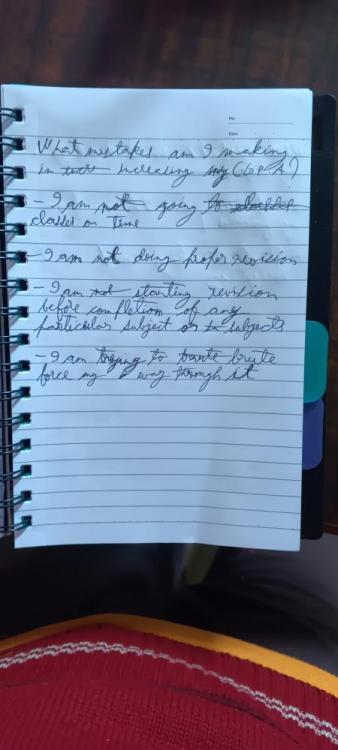 No.
Date
What mistakes am I making
in increasing my C.G.P.A?
- I am not going to
classes on time
- I am not doing proper revision
- I am not starting revision
before completion of any
particular subject or subjects
- I am trying to brute
force my way through it